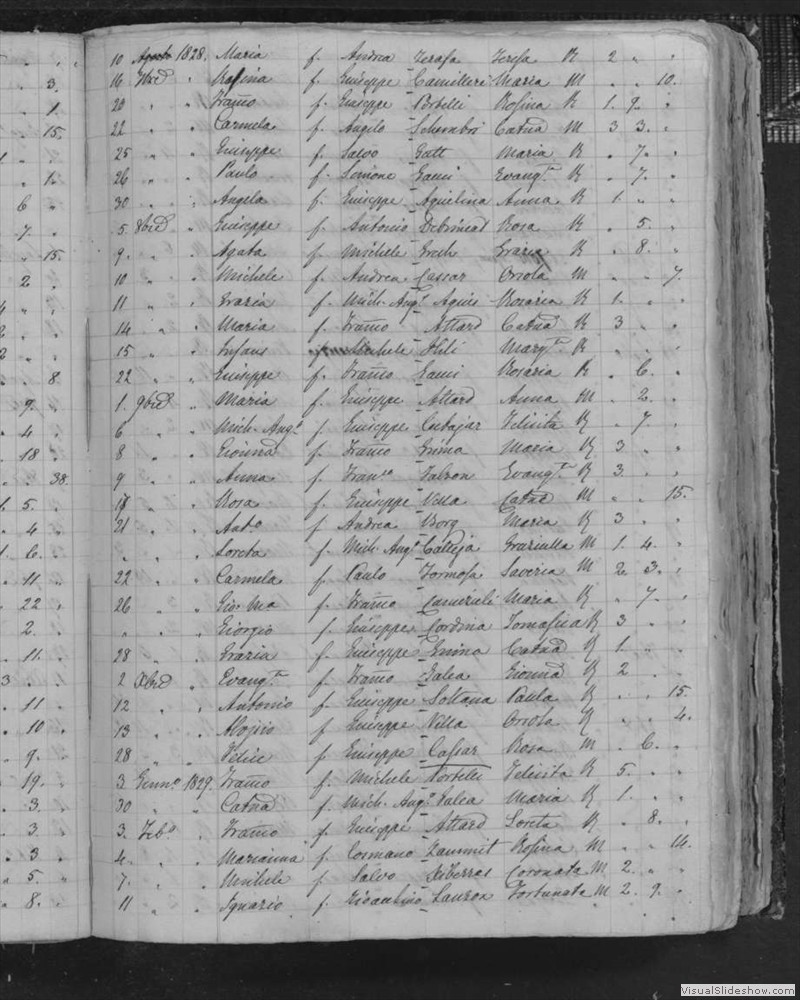 10 Agosto 1828. Maria f. Andrea Zerafa Teresa R 2 " "
16 7bre " Rosina f. Giuseppe Camilleri Maria M " " 10.
20 " " Franco f. Giuseppe Portelli Rosina R 1. 9. "
22 " " Carmela f. Angelo Schembri Catna M 3 3. "
25 " " Giuseppe f. Salvo Galt Maria R " 7. "
26 " " Paulo f. Simone Gauci Evangta R " 7. "
30 " " Angela f. Giuseppe Aquilina Anna R 1. " "
5. 8bre " Giuseppe f. Antonio Rosa R " 5. "
9. " " Agata f. Michele Grech Grazia R " 8. "
10 " " Michele f. Andrea Cassar Orsola M " " 7.
11 " " Grazia f. Mich. Angl. Agius Rosaria R 1. " "
14 " " Maria f. Franco Attard Catna R 3 " "
15 " " Infans Michele Mili Margta R " " "
22 " " Giuseppe f. Franco Gauci Rosaria R " 6. "
1. 9bre " Maria f. Giuseppe Attard Anna M " 2. "
6 " " Mich. Angl. f Giuseppe Cutajar Felicita R " 7. "
8 " " Gionna f. Franco Grima Maria R 3 " "
9 " " Anna f. Franco Falzon Evangta R 3. " "
" " Rosa f. Giuseppe Vella Catna M " " 15.
21 " " Anto f Andrea Borg Maria R 3 " "
" " " Loreta f. Mich. Angl. Calleja Graziulla M 1. 4. "
22 " " Carmela f. Paulo Formosa Saveria M 2 3. "
26 " " Gior Ma f. Franco Camenzuli Maria R " 7. "
" " " Giorgio f. Giuseppe Cordina Tomasica R 3 " "
28 " " Grazia f. Giuseppe Grima Catna R 1. " "
2 Xbre " Evangta f. Franco Galea Gionna R 2 " "
12 " " Antonio f. Giuseppe Soltana Paula R " " 15
13 " " Alojsio f Giuseppe Vella Orsola R " " 4.
28 " " Felice f Giuseppe Cassar Rosa M " 6. "
3. Genno. 1829. Franco f. Michele Portelli Felicita R 5. " "
30 " " Catna f. Mich. Angl. Galea Maria R 1. " "
3. Febo " Franco f. Giuseppe Attard Loreta R " 8. "
4. " " Marianna f. Cosmano Zammit Rosina M " " 14.
7. " " Michele f. Salvo Xiberras Coronata M 2. " "
11 " " Ignazio f. Gioachino Sauron Fortunata M 2. 9. "
VisualSlideshow.com